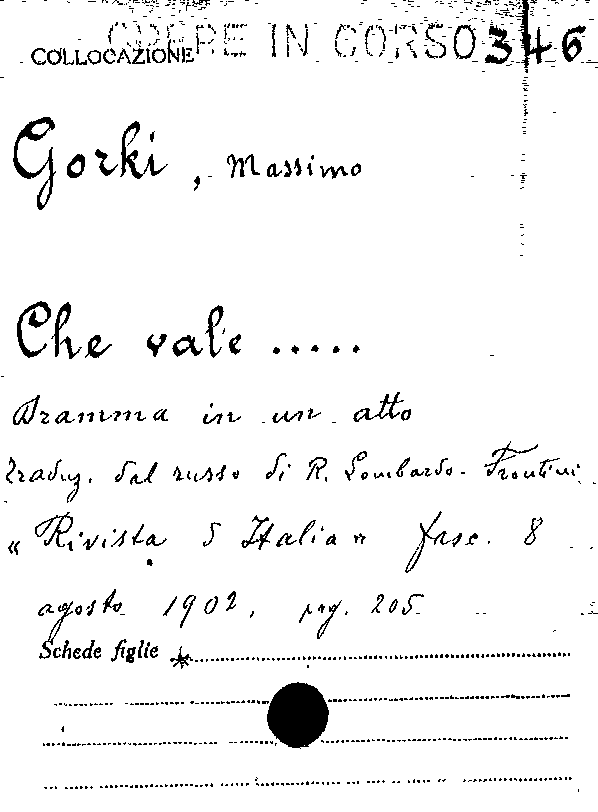 OPERE IN CORSO 346
COLLOCAZIONE
Gorki, Massimo
Che vale .....
Dramma in un atto
Traduz. dal russo di R. Lombardo-Frontini
« Rivista d Italia » fasc. 8
agosto 1902, pag. 205
Schede figlie *